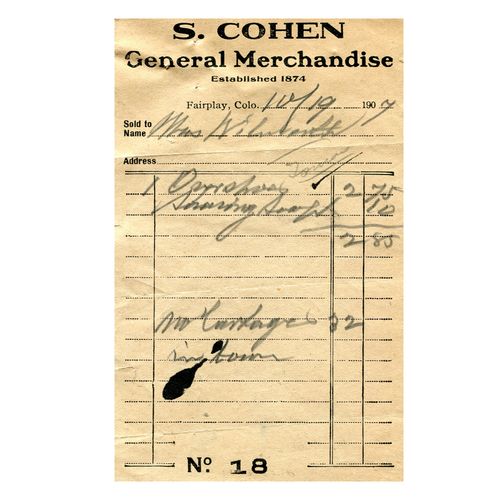 S. COHEN
General Merchandise
Established 1874
Fairplay, Colo. 10/19 1907
Sold to
Name Mrs
Address
Town
1 Overshoes 2 75
Shaving Soap 10
2 85
No Cabbage 32
in town
No 18